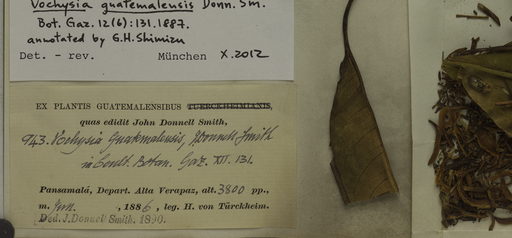 Vochysia guatemalensis Donn. Sm.
Bot. Gaz. 12(6):131.1887.
annotated by G.H.Shimizu
Det. - rev. München X.2012
EX PLANTIS GUATEMALENSIBUS TUERCKHEIMIANIS,
quas edidit John Donnell Smith,
943. Vochysia Guatemalensis, J.Donnell Smith
in Coult. Botan. Gaz. XII. 131.
Pansamalá, Depart. Alta Verapaz, alt. 3800 pp.,
m. , 1886, leg. H. von Türckheim.
Ded. J. Donnell Smith. 1890.